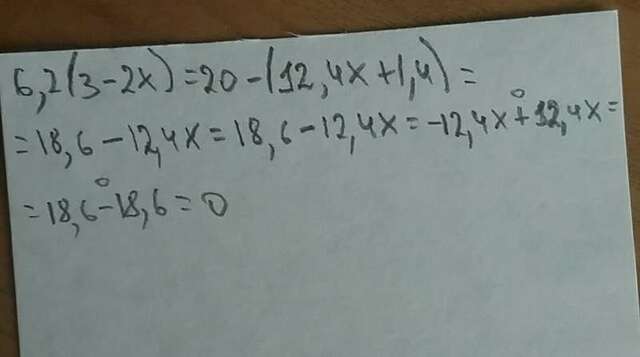 6,2(3-2x)=20-(12,4x+1,4)=
=18,6-12,4x=18,6-12,4x=-12,4x+12,4x=
=18,6-18,6=0